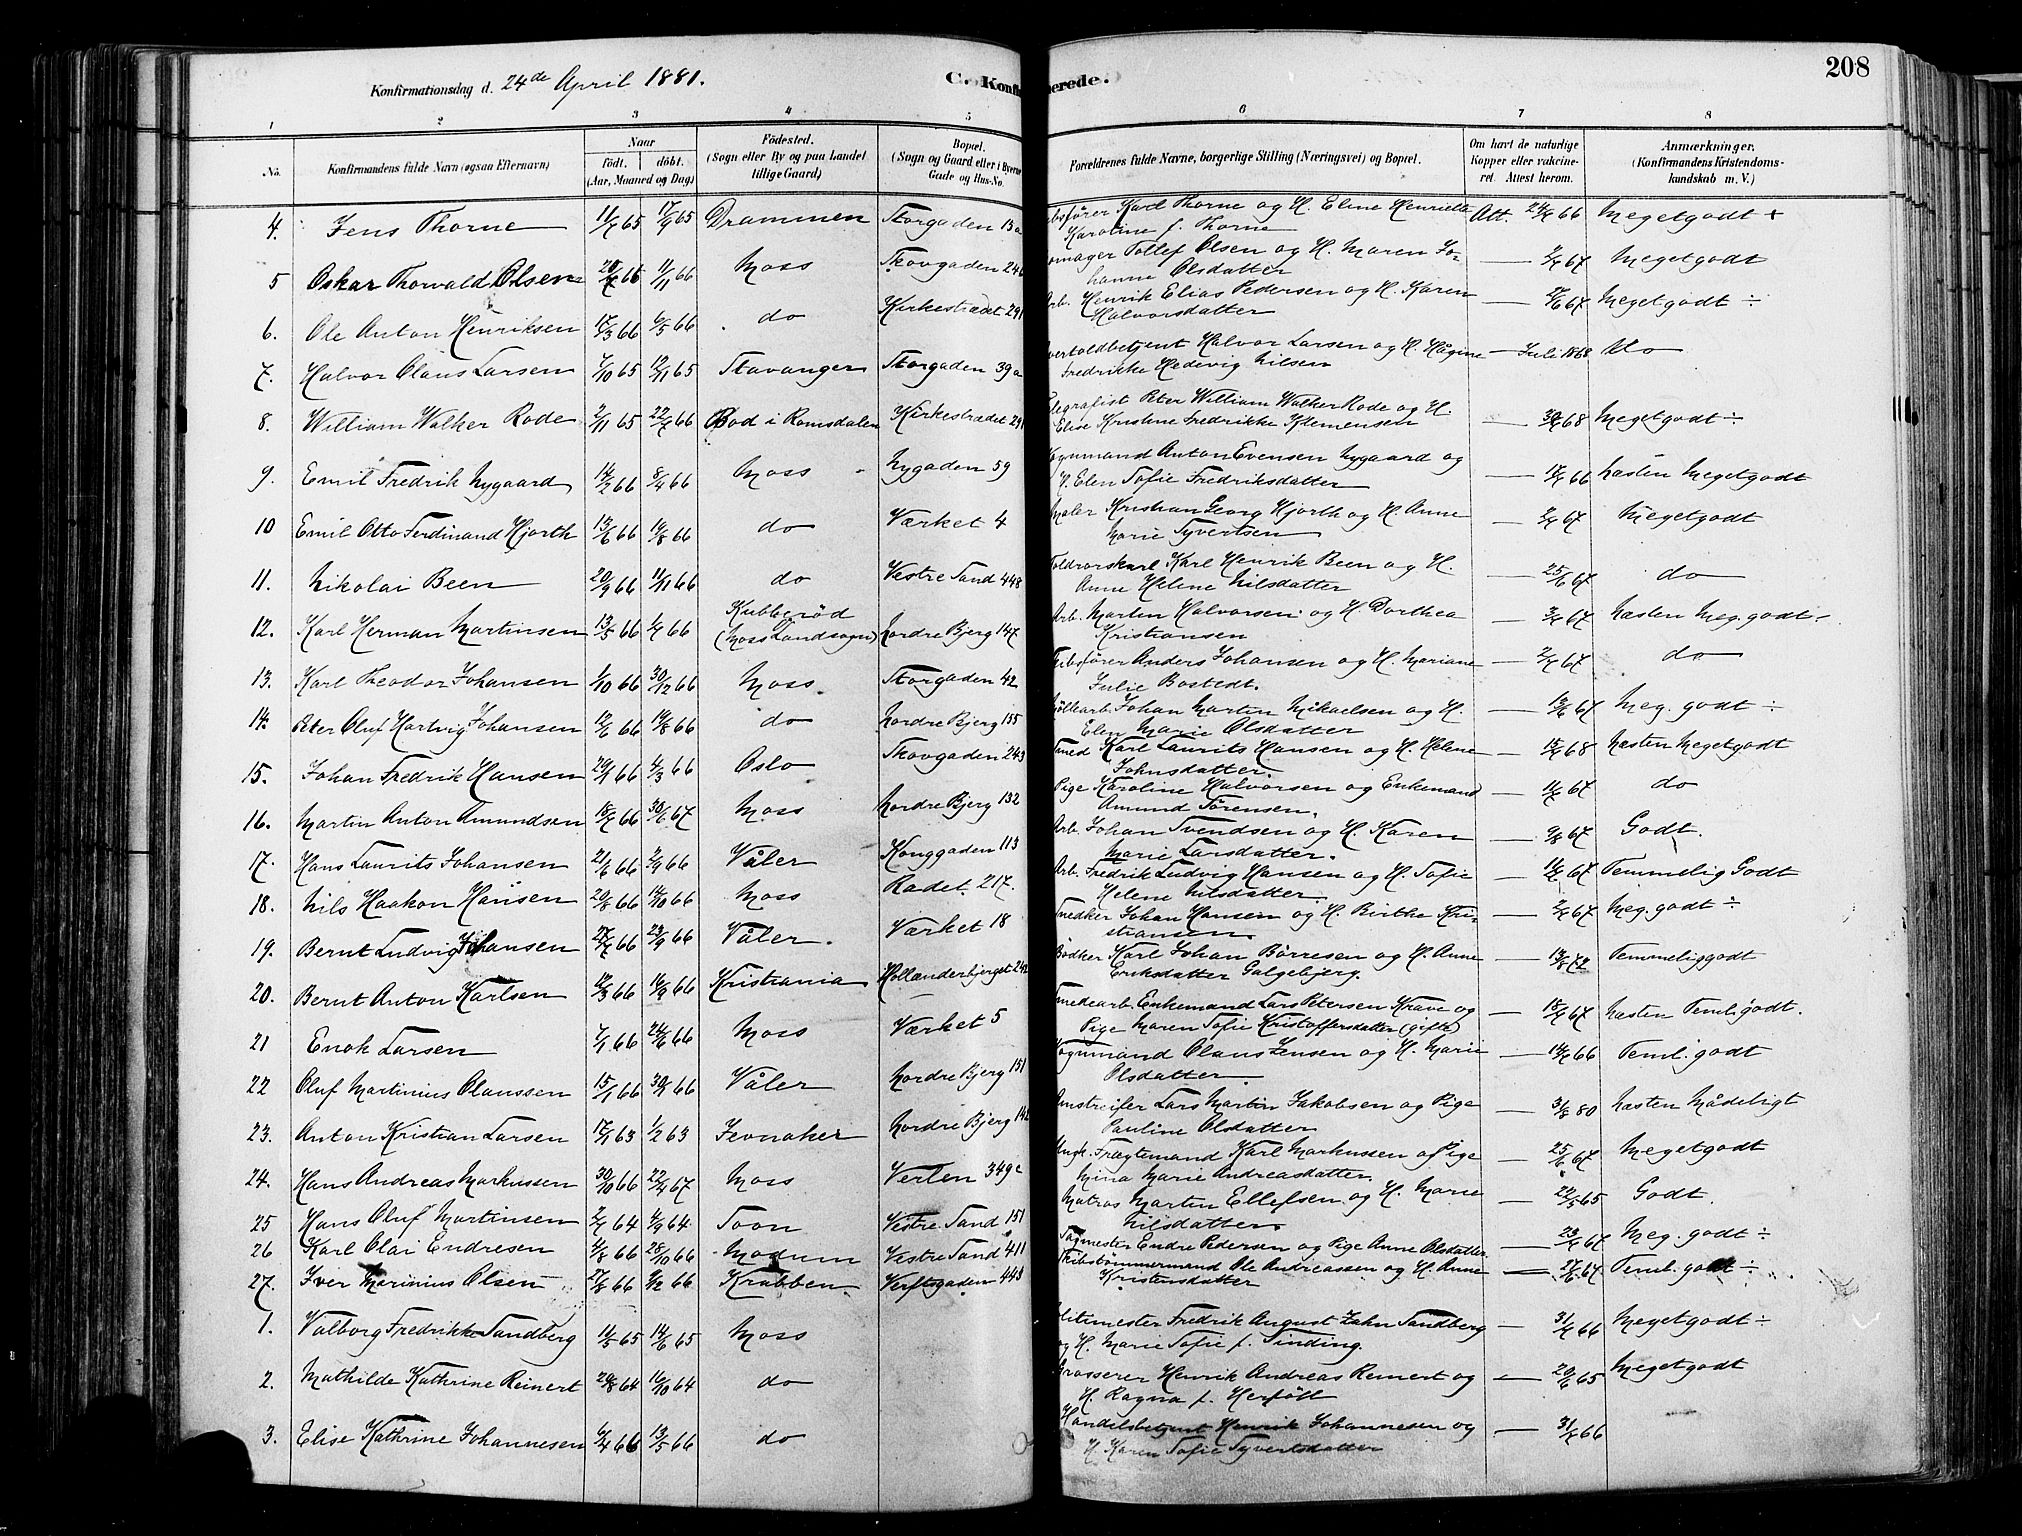 208
Konfirmationsdag d. 24de April 1881.
C. Konfi erede.
1 2 3 4 5 6 7 8
No. Konfirmandens fulde Navn (ogsaa Efternavn) Naar født. døbt. (Aar, Maaned og Dag) Fødested. (Sogn eller By og paa Landet tillige Gaard) Bopæl. (Sogn og Gaard, eller i Byerne Gade og Hus-No. Forældrenes fulde Navne, borgerlige Stilling (Næringsvei) og Bopæl. Om havt de naturlige Kopper eller vakcineret. Attest herom. Anmærkninger. (Konfirmandens Kristendomskundskab m. V.)
4. Jens Thorne 65 65 Drammen Storgaden 13a Karl Thorne og H. Eline Henriette Att. 66 Megetgodt +
Karoline f. Thorne
5 Oskar Thorvald Olsen 66 11/11 66 Moss Skovgaden 246 Tollef Olsen og H. Maren Jo- — 67 Megetgodt
hanne Olsdatter
6. Ole Anton Henriksen 17/3 66 6/5 66 do Kirkestrædet 291 Arb. Henrik Elias Pedersen og H. Karen — 67 Megetgodt ÷
Halvorsdatter
7. Halvor Olaus Larsen 7/10 65 12/11 65 Stavanger Storgaden 39a Halvor Larsen og H. Hågine — Juli 1868 do
Fredrikke Hedevig Nilsen
8. William Walker Rode 2/11 65 66 Bod i Romsdalen Kirkestrædet 291 Peter William Walker Rode og H. — 68 Megetgodt ÷
Elise Kristine Fredrikke Klemensen
9. Emil Fredrik Nygaard 14/2 66 8/4 66 Moss Nygaden 59 Anton Evensen Nygaard og — 66 Næsten Megetgodt
H. Elen Sofie Fredriksdatter
10 Emil Otto Ferdinand Hjorth 13/6 66 19/8 66 do Værket 4 Maler Kristian Georg Hjorth og H. Anne — 67 Megetgodt
Marie Syvertsen
11. Nikolai Been 20/9 66 11/11 66 do Vestre Sand 448 Toldrorskarl Karl Henrik Been og H. — 25/6 67 do
Anne Helene Nilsdatter
12. Karl Herman Martinsen 13/5 66 66 Kubberød (Moss Landsogn) Nordre Bjerg 147 Arb. Martin Halvorsen og H. Dorthea — 67 Næsten Meg. godt
Kristiansen
13. Karl Theodor Johansen 1/10 66 30/12 66 Moss Storgaden 42 Anders Johansen og H. Mariane — 67 do
Julie Bostedt.
14. Peter Oluf Hartvig Johansen 12/6 66 19/8 66 do Nordre Bjerg 155 Johan Martin Mikaelsen og H. — 67 Meg. godt ÷
Elen Marie Olsdatter
15. Johan Fredrik Hansen 29/1 66 4/3 66 Oslo Skovgaden 243 Smed Karl Laurits Hansen og H. Helene — 68 Næsten Megetgodt
Johnsdatter.
16. Martin Anton Amundsen 66 67 Moss Nordre Bjerg 132 Pige Karoline Halvorsen og Enkemand — 67 do
Amund Sørensen.
17. Hans Laurits Johansen 21/6 66 2/9 66 Våler Konggaden 113 Arb. Johan Svendsen og H. Karen — 67 Godt.
Marie Larsdatter.
18. Nils Haakon Hansen 20/8 66 14/10 66 Moss Radet 217. Arb. Fredrik Ludvig Hansen og H. Sofie — 67 Temmelig Godt
Helene Nilsdatter.
19. Bernt Ludvig Johansen 66 23/9 66 Våler. Værket 18 Snedker Johan Hansen og H. Birthe Kri- — 67 Meg. godt ÷
stiansen.
20. Bernt Anton Karlsen 12/3 66 16/9 66 Kristiania Hollænderbjerget 242 Bødker Karl Johan Børresen og H. Anne — 72 Temmeliggodt
Eriksdatter Galgebjerg.
21 Enok Larsen 7/1 66 24/6 66 Moss Værket 5 Smedearb. Enkemand Lars Petersen Krave og — 67 Næsten Teml. godt.
Pige Maren Sofie Kristoffersdatter (gift)
22 Oluf Martinius Olaussen 15/1 66 66 Våler Nordre Bjerg 151 Olaus Jensen og H. Marie — 66 Teml. godt
Olsdatter
23. Anton Kristian Larsen 17/1 63 1/2 63 Jevnaker Nordre Bjerg 142 Lars Martin Jakobsen og Pige — 31/8 80 Næsten Mådeligt
Pauline Olsdatter
24. Hans Andreas Markussen 30/10 66 22/4 67 Moss Verlen 349c Ungk. Frægtemand Karl Markussen og Pige — 25/6 67 Megetgodt
Mina Marie Andreasdatter
25 Hans Oluf Martinsen 64 4/9 64 Soon Vestre Sand 151 Matros Martin Ellefsen og H. Marie — 22/5 65 Godt.
Nilsdatter
26 Karl Olai Endresen 4/8 66 28/10 66 Modum Vestre Sand 411 Sagmester Endre Pedersen og Pige Anne Olsdatter — 67 Meg. godt ÷
27. Iver Marinius Olsen 27/8 66 66 Krabben. Verftgaden 443 Skibstømmermand Ole Andreassen og H. Anne — 67. Teml. godt ÷
Kristensdatter
1. Valborg Fredrikke Sandberg 11/5 65 14/6 65 Moss Fredrik August Zahn Sandberg — 66 Megetgodt ÷
og H. Marie Sofie f. Tinding.
2. Mathilde Kathrine Reinert 29/8 64 16/10 64 do Grosserer Henrik Andreas Reinert og — 20/6 65 Megetgodt
H. Ragna f. Herføll
3. Elise Kathrine Johannesen 6/4 66 13/5 66 do Handelsbetjent Henrik Johannesen og — 66
H. Karen Sofie Syvertsdatter